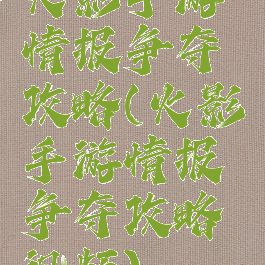 火影手游
情报争夺
攻略(火影
手游情报
争夺攻略
视频)